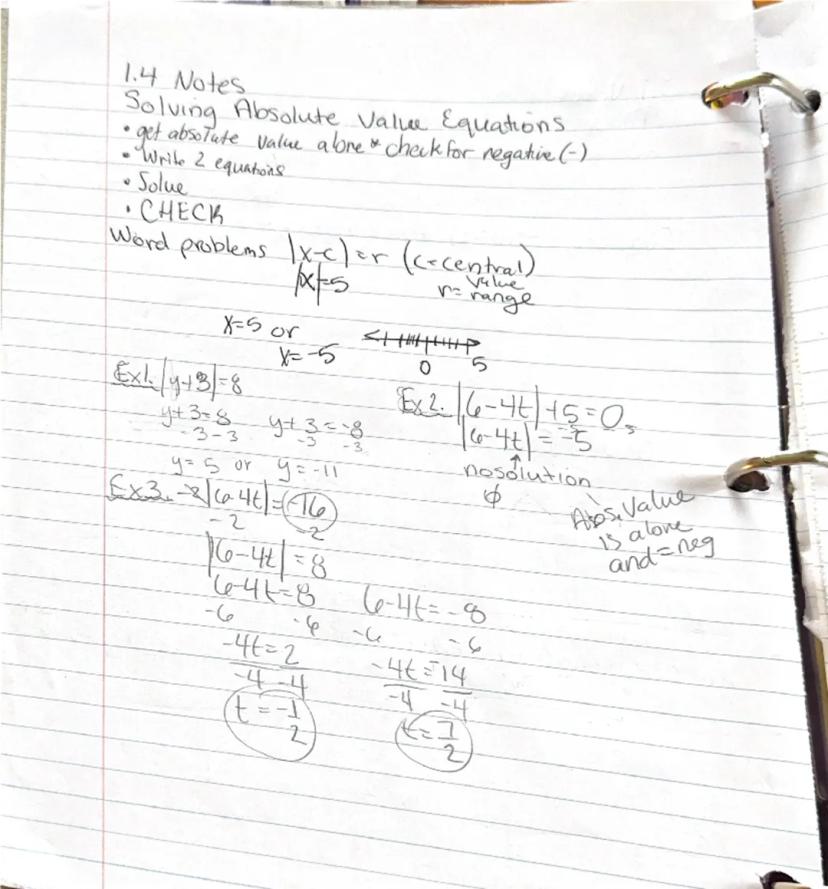 1.4 Notes
Solving Absolute Value Equations
• get absolute value alone * check for negative (-)
• Write 2 equations
• Solve
• CHECK
Word problems |x-c|=r (c=central value
r= range)
|x|=5
x=5 or
x=-5
0 5
Ex1. |y+3|=8
y+3=8 y+3=-8
-3 -3 -3 -3
y=5 or y=-11
Ex2. |6-4t|+5=0
|6-4t|=-5
↑
no solution
∅
Abs. Value
is alone
and = neg
Ex3. -2|6-4t|=-16
-2 -2
|6-4t|=8
6-4t=8 6-4t=-8
-6 -6 -6 -6
-4t=2 -4t=-14
-4 -4 -4 -4
t=-1/2 t=7/2